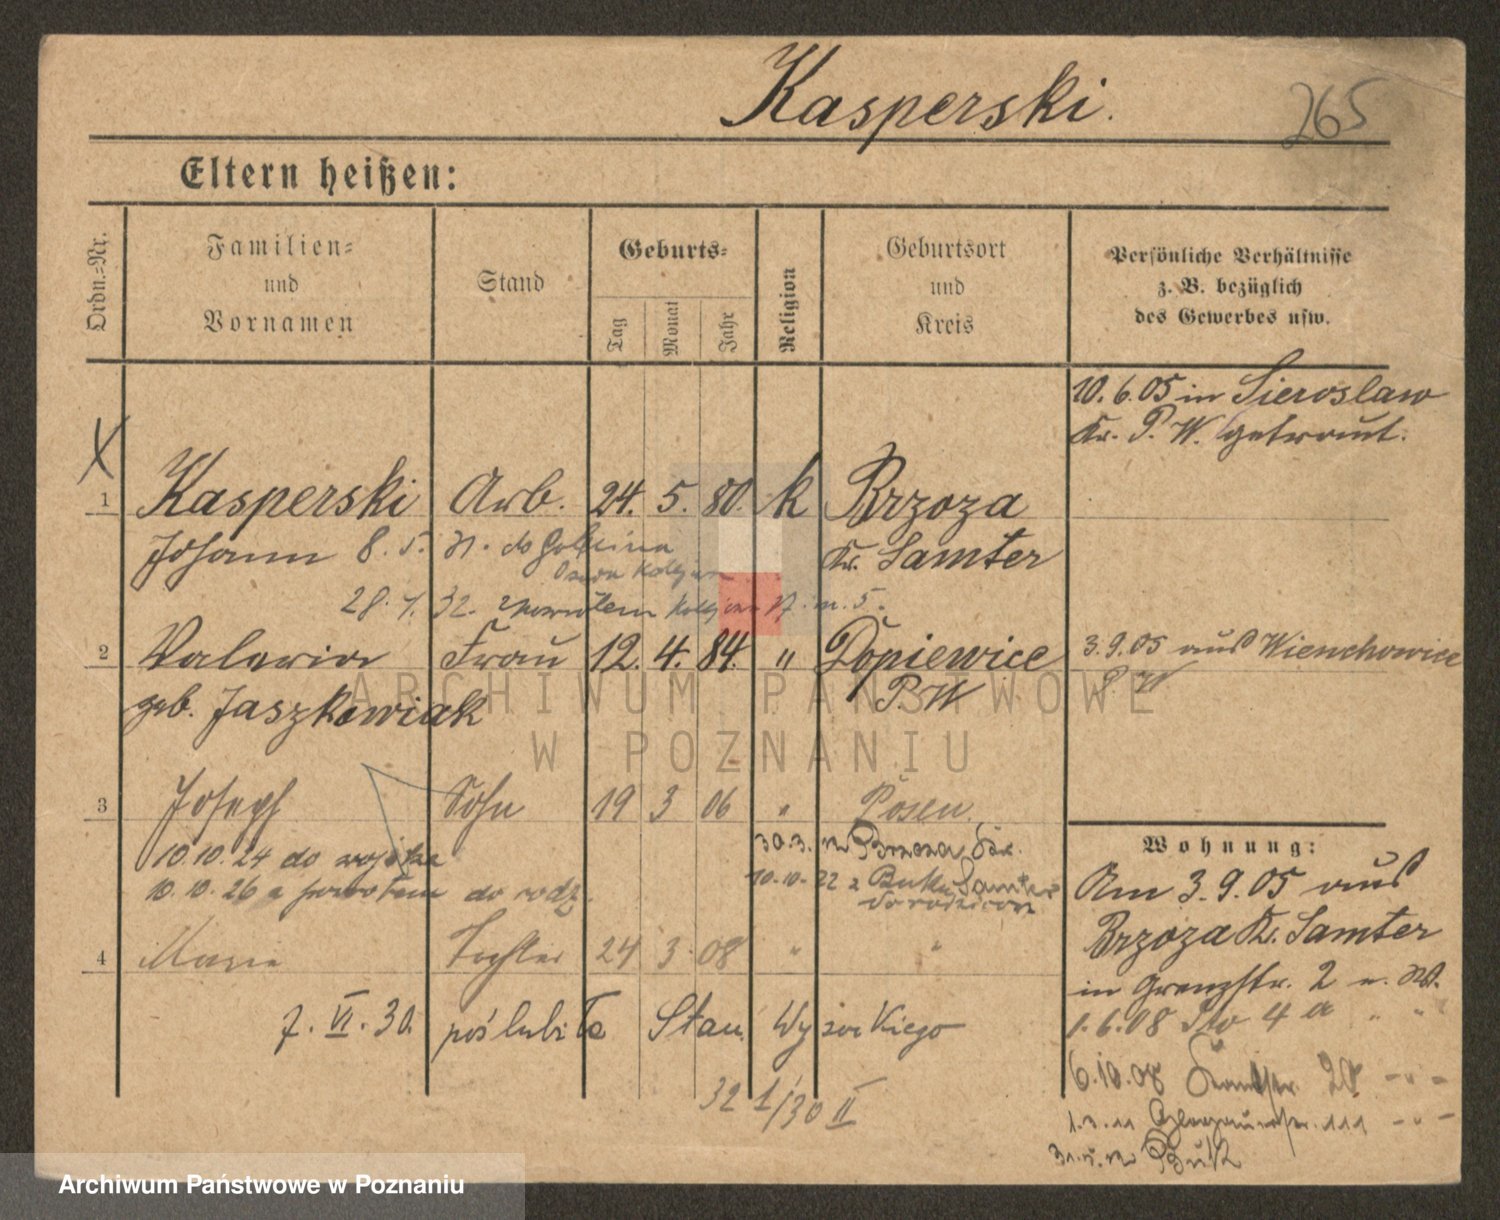 Kasperski.
265
Eltern heißen:
Ordn.=Nr.
Familien=
und
Vornamen
Stand
Geburts=
Tag
Monat
Jahr
Religion
Geburtsort
und
Kreis
Persönliche Verhältnisse
z. B. bezüglich
des Gewerbes usw.
10. 6. 05 in Sieroslaw
Kr. P. W. getraut.
X
1 Kasperski Arb. 24. 5. 80. k Brzoza
Johann 8. 5. 31. do Kr. Samter
28. 32. zpowrotem 17. m. 5.
2 Valeria Frau 12. 4. 84. " Dopiewice 3. 9. 05 aus Wienchowice
geb. Jaszkowiak P. W P. W
3 Joseph Sohn 19 3 06 " Posen.
10.10.24 do wojska 30.3. Brzoza Kr.
10.10.26 z powrotem do rodz. 10.10.22 z Buku Samter
do rodziców
4 Marie Tochter 24 3 08 " "
7. VI. 30. poślubiła Stan. Wysockiego
32 1/30 II
Wohnung:
Am 3. 9. 05 aus
Brzoza Kr. Samter
in Grenzstr. 2 n. W.
1. 6. 08 4 a " "
6.10.08 - " -
1.3.11 Glogauerstr. 111 - " -
Buk
Archiwum Państwowe
w Poznaniu
Archiwum Państwowe w Poznaniu